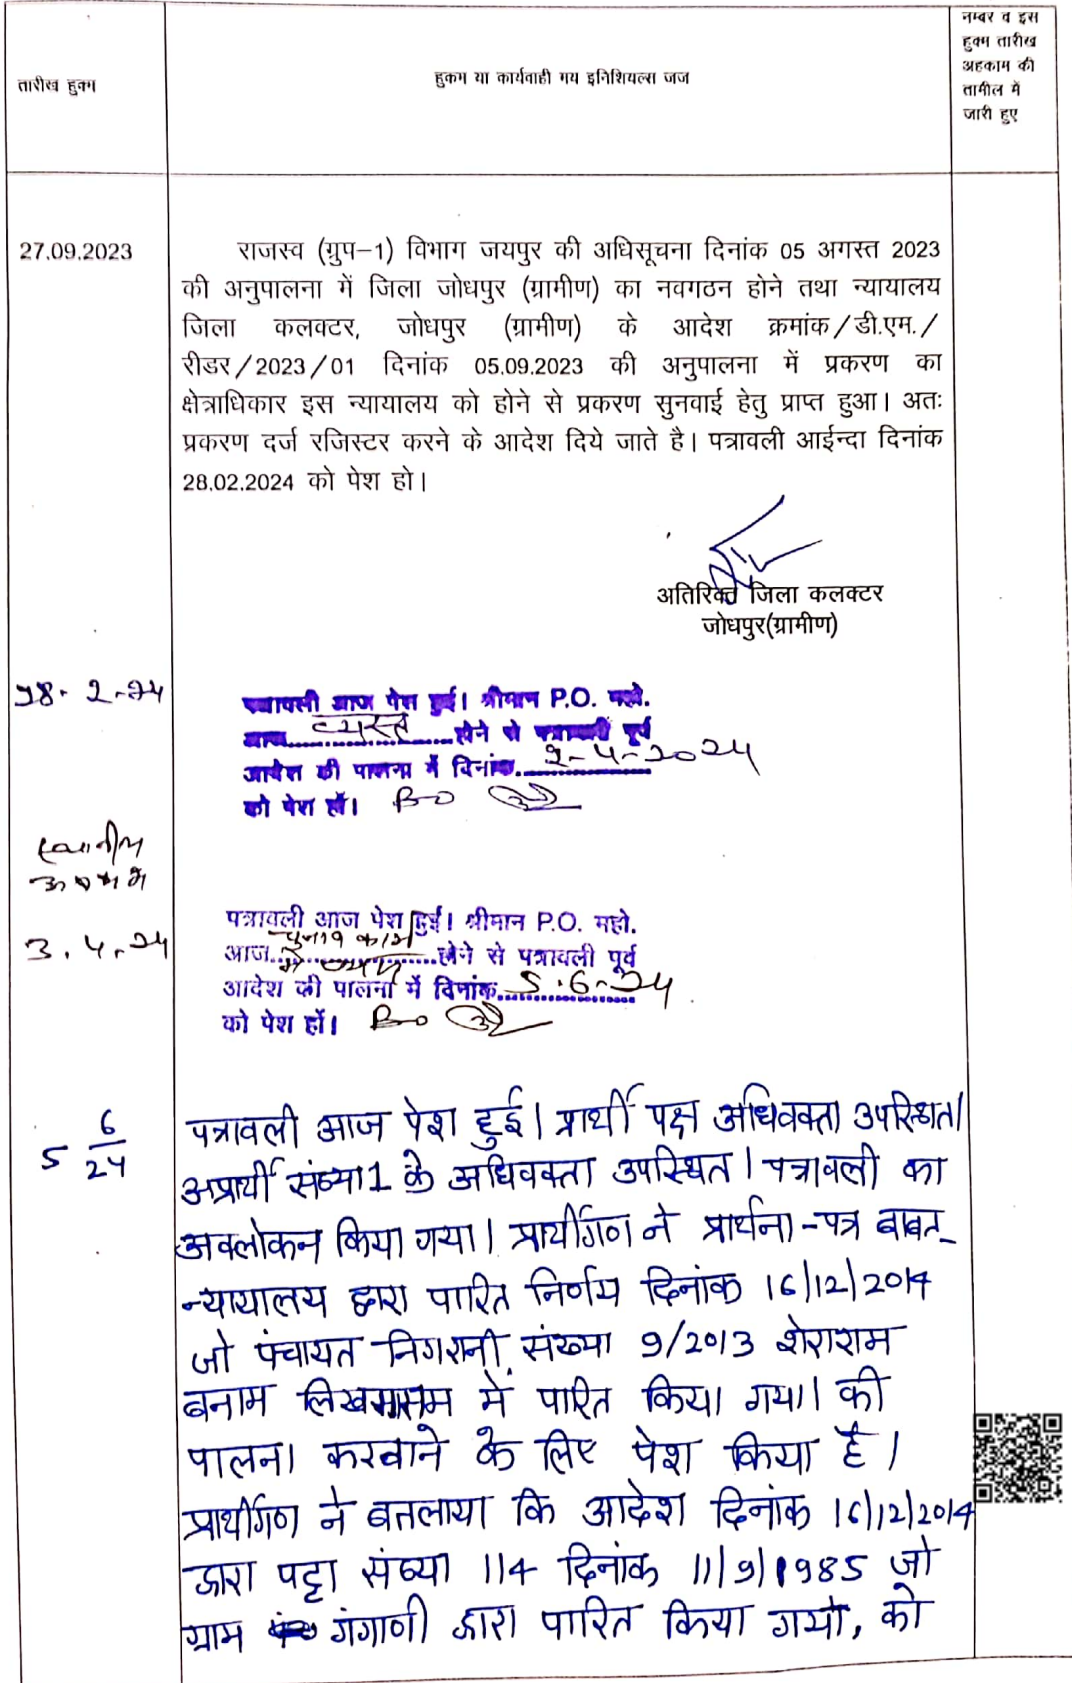 तारीख हुक्म
हुकम या कार्यवाही मय इनिशियल्स जज
नम्बर व इस
हुक्म तारीख
अहकाम की
तामील में
जारी हुए
27.09.2023
राजस्व (ग्रुप-1) विभाग जयपुर की अधिसूचना दिनांक 05 अगस्त 2023
की अनुपालना में जिला जोधपुर (ग्रामीण) का नवगठन होने तथा न्यायालय
जिला कलक्टर, जोधपुर (ग्रामीण) के आदेश क्रमांक/डी.एम./
रीडर/2023/01 दिनांक 05.09.2023 की अनुपालना में प्रकरण का
क्षेत्राधिकार इस न्यायालय को होने से प्रकरण सुनवाई हेतु प्राप्त हुआ। अतः
प्रकरण दर्ज रजिस्टर करने के आदेश दिये जाते है। पत्रावली आईन्दा दिनांक
28.02.2024 को पेश हो।
अतिरिक्त जिला कलक्टर
जोधपुर(ग्रामीण)
28-2-24
पत्रावली आज पेश हुई। श्रीमान P.O. महो.
आज व्यस्त होने से पत्रावली पूर्व
आदेश की पालना में दिनांक 2-4-2024
को पेश हों।
3.4.24
पत्रावली आज पेश हुई। श्रीमान P.O. महो.
आज चुनाव कार्य
में व्यस्त होने से पत्रावली पूर्व
आदेश की पालना में दिनांक 5.6-24
को पेश हों।
5 6/24
पत्रावली आज पेश हुई। प्रार्थी पक्ष अधिवक्ता उपस्थित।
अप्रार्थी संख्या 1 के अधिवक्ता उपस्थित। पत्रावली का
अवलोकन किया गया। प्रार्थीगण ने प्रार्थना-पत्र बाबत
न्यायालय द्वारा पारित निर्णय दिनांक 16/12/2014
जो पंचायत निगरानी संख्या 9/2013 शेराराम
बनाम लिखमाराम में पारित किया गया। की
पालना करवाने के लिए पेश किया है।
प्रार्थीगण ने बतलाया कि आदेश दिनांक 16/12/2014
द्वारा पट्टा संख्या 114 दिनांक 11/9/1985 जो
ग्राम गंगाणी द्वारा पारित किया गया, को